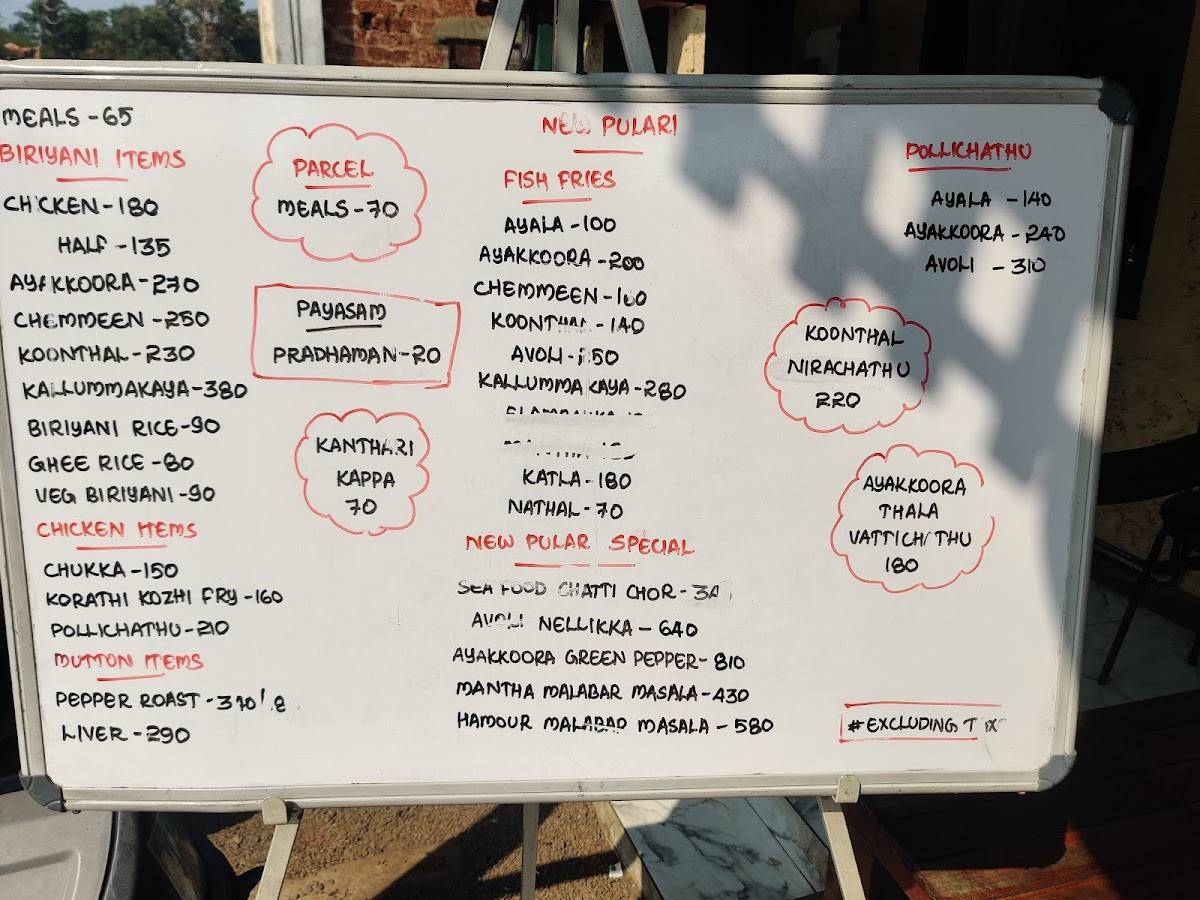 MEALS - 65
BIRIYANI ITEMS
CHICKEN - 180
HALF - 135
AYAKKOORA - 270
CHEMMEEN - 250
KOONTHAL - 230
KALLUMMAKAYA - 380
BIRIYANI RICE - 90
GHEE RICE - 80
VEG BIRIYANI - 90
CHICKEN ITEMS
CHUKKA - 150
KORATHI KOZHI FRY - 160
POLLICHATHU - 210
MUTTON ITEMS
PEPPER ROAST -
LIVER - 290
PARCEL
MEALS - 70
PAYASAM
PRADHAMAN - 20
KANTHARI
KAPPA
70
NEW PULARI
FISH FRIES
AYALA - 100
AYAKKOORA - 200
CHEMMEEN -
KOONTHAL - 140
AVOLI -
KALLUMMAKAYA - 280
KATLA - 180
NATHAL - 70
NEW PULAR SPECIAL
SEA FOOD CHATTI CHOR -
AVOLI NELLIKKA - 640
AYAKKOORA GREEN PEPPER - 810
MANTHA MALABAR MASALA - 430
HAMOUR MALABAR MASALA - 580
POLLICHATHU
AYALA - 140
AYAKKOORA - 240
AVOLI - 310
KOONTHAL
NIRACHATHU
220
AYAKKOORA
THALA
VATTICHATHU
180
# EXCLUDING TAX